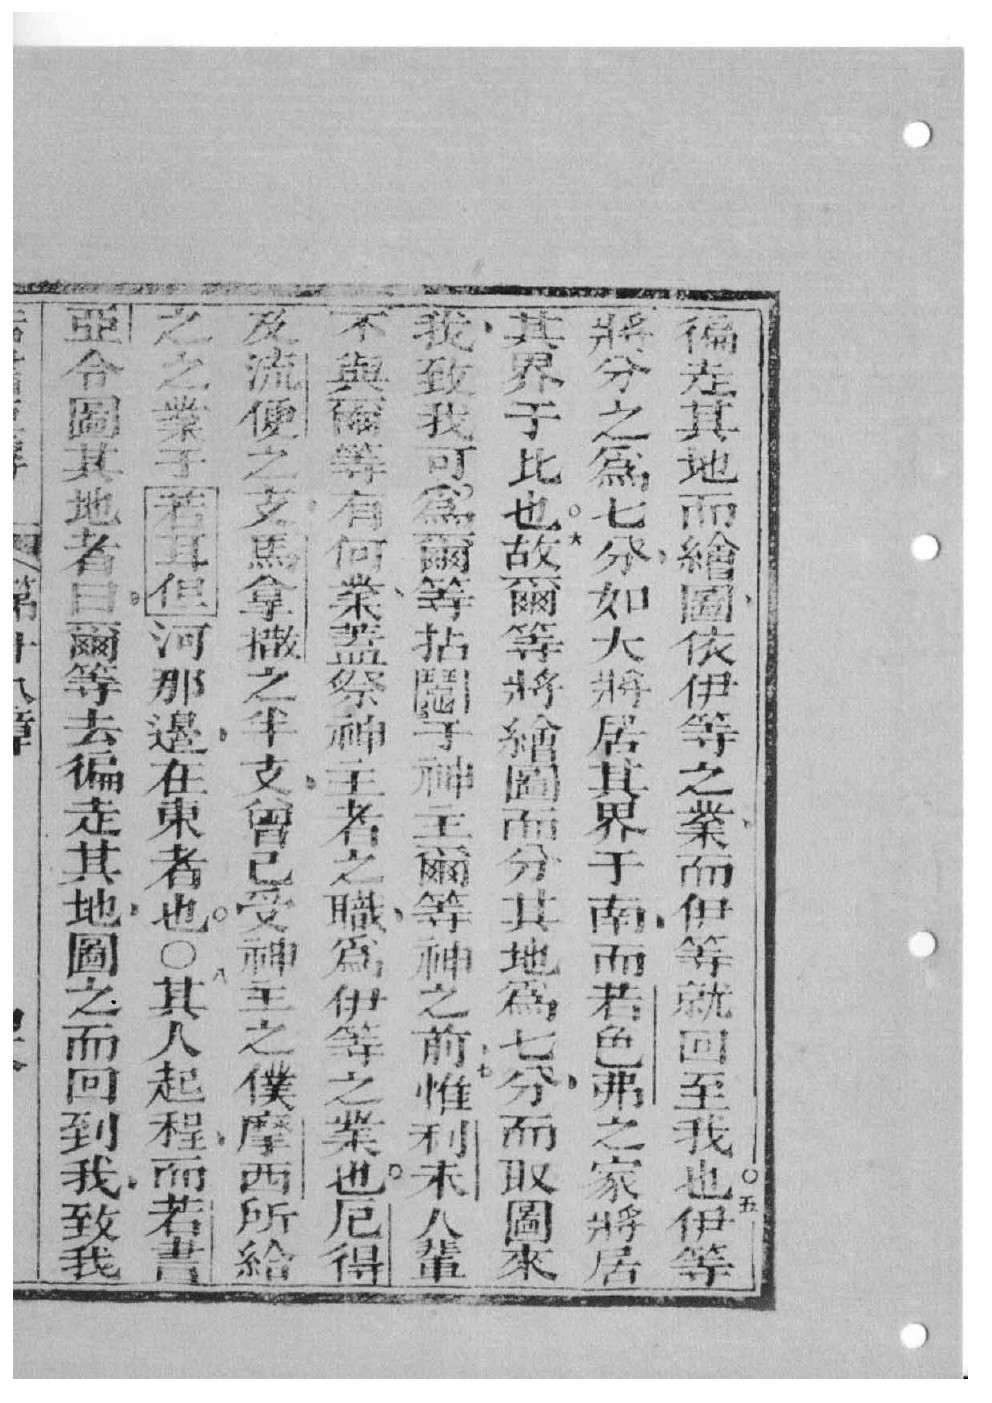 徧走其地而繪圖依伊等之業而伊等就回至我也○五伊等
將分之爲七分如大將居其界于南而若色弗之家將居
其界于北也○六故爾等將繪圖而分其地爲七分而取圖來
我致我可爲爾等拈鬮于神主爾等神之前七惟利未人輩
不與爾等有何業蓋祭神主者之職爲伊等之業也○厄得
及流便之支馬拿撒之半支曾已受神主之僕摩西所給
之之業于若耳但河那邊在東者也○○八其人起程而若書
亞令圖其地者曰爾等去徧走其地圖之而回到我致我
若書亞 第十八章